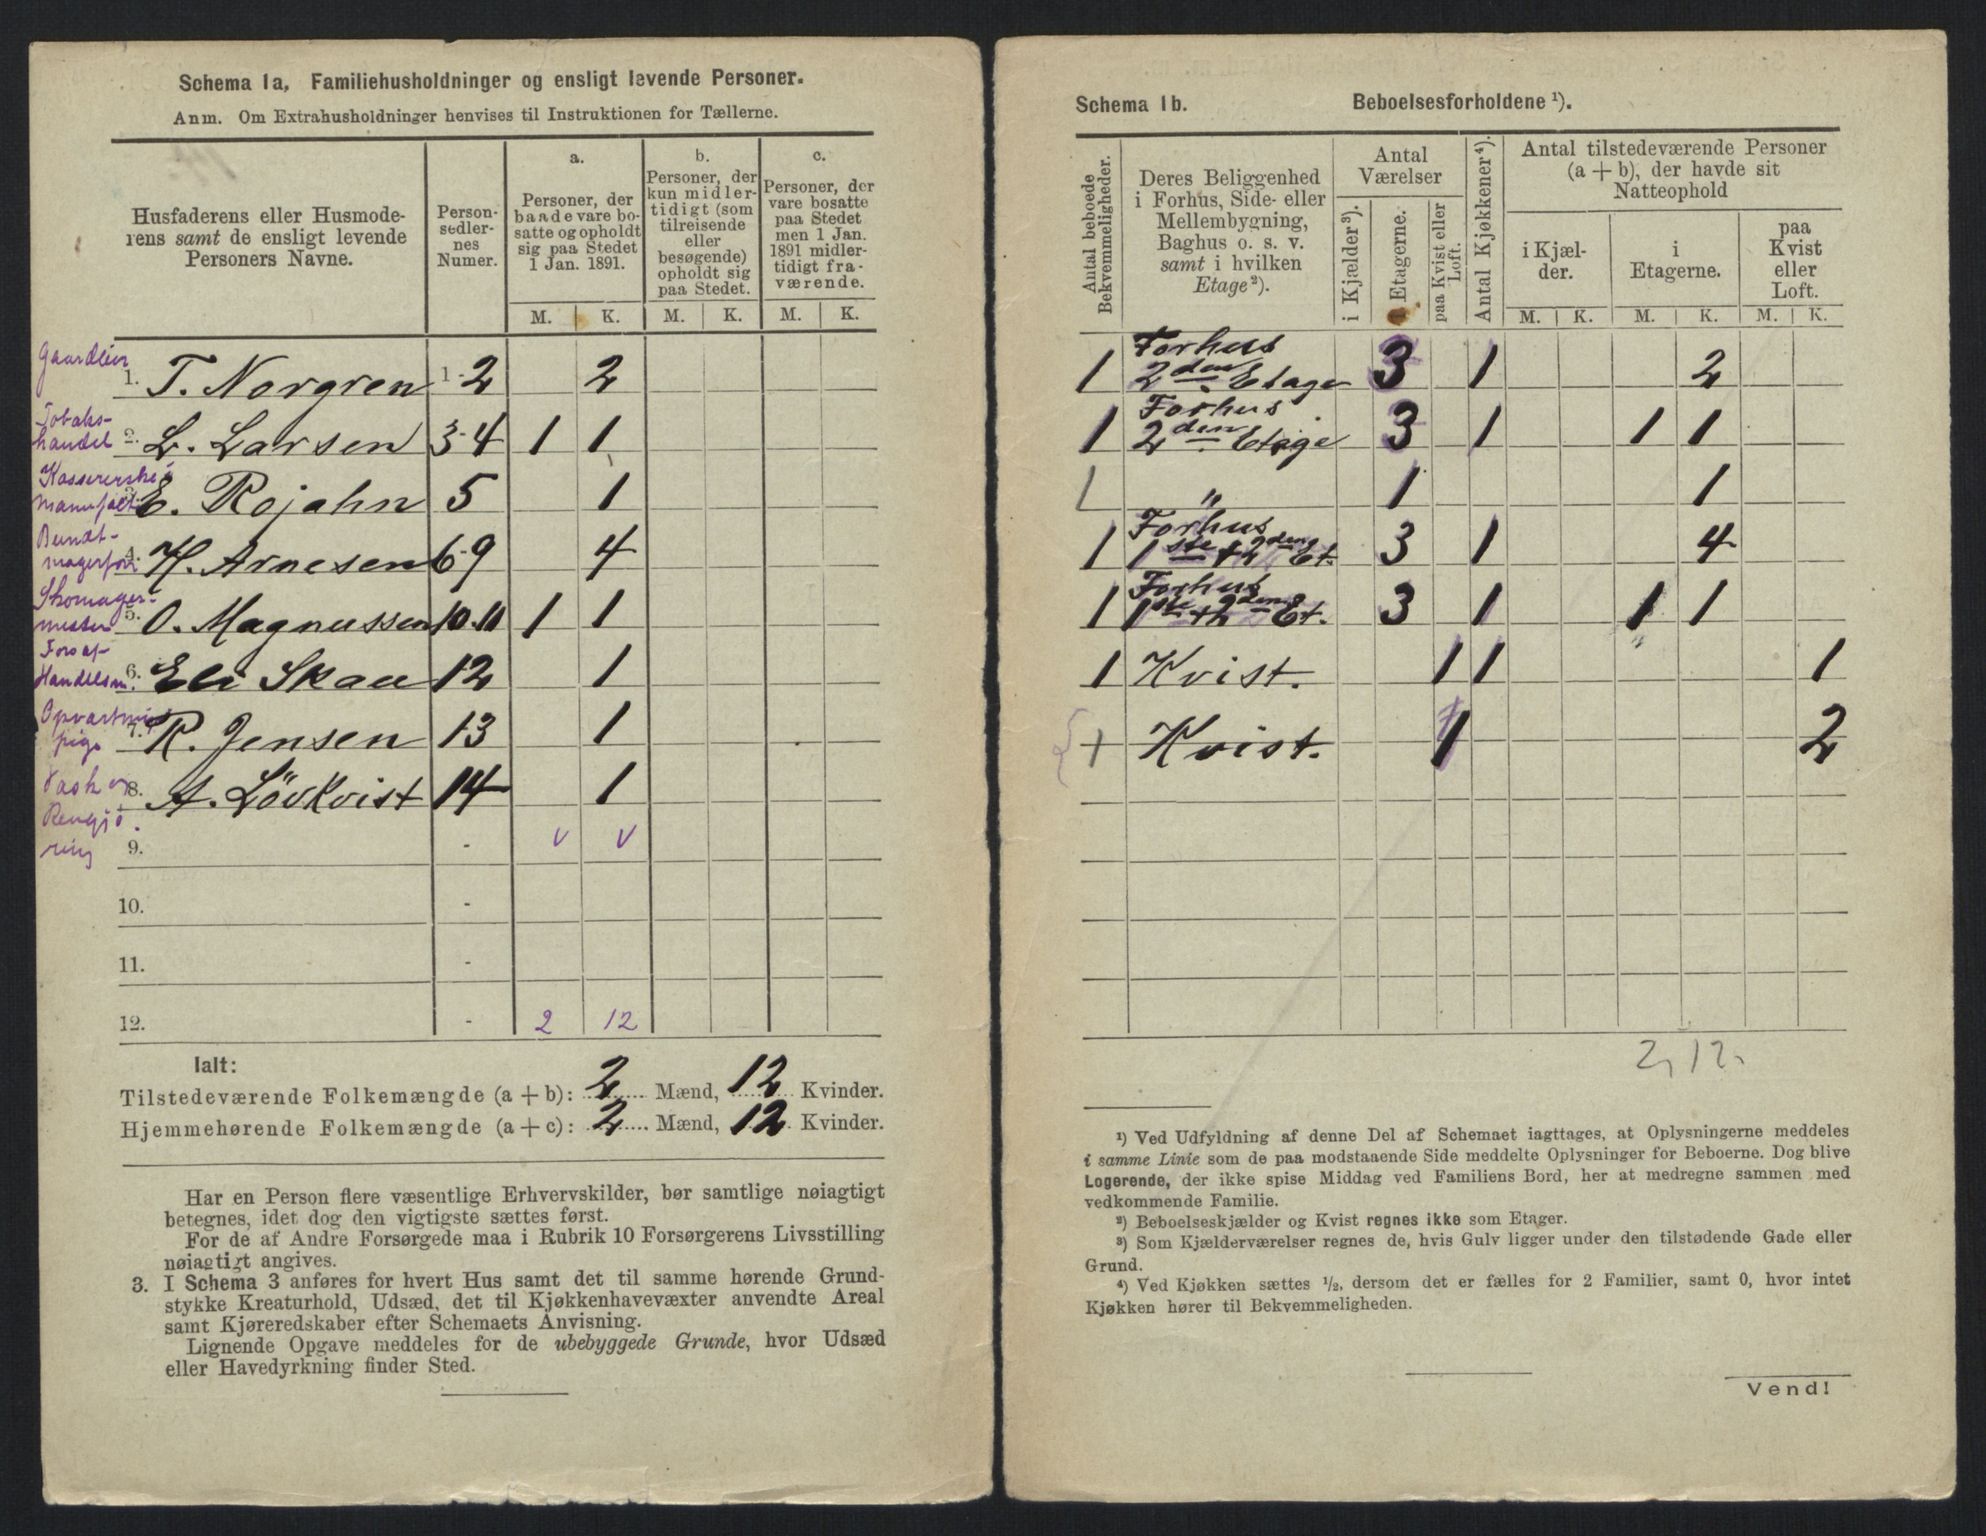 Schema 1a, Familiehusholdninger og ensligt levende Personer.
Anm. Om Extrahusholdninger henvises til Instruktionen for Tællerne.
Husfaderens eller Husmode-
rens samt de ensligt levende
Personers Navne.
Person-
sedler-
nes
Numer.
a.
Personer, der
baade vare bo-
satte og opholdt
sig paa Stedet
1 Jan. 1891.
b.
Personer, der
kun midler-
tidigt (som
tilreisende
eller
besøgende)
opholdt sig
paa Stedet.
c.
Personer, der
vare bosatte
paa Stedet
men 1 Jan.
1891 midler-
tidigt fra-
værende.
M. K. M. K. M. K.
Gaardeier
1. T. Norgren 1-2 2
Tobaks-
handel 2. L. Larsen 3-4 1 1
3. E. Rojahn 5 1
Bundt-
4. H. Arnesen 6-9 4
Skomager-
mester 5. O. Magnussen 10-11 1 1
Fors af
Handelsm. 6. Eli Skau 12 1
pige 7. R. Jensen 13 1
Vask og 8. A. Lövkvist 14 1
Rengjö
ring 9. - v v
10. -
11. -
12. - 2 12
Ialt:
Tilstedeværende Folkemængde (a + b): 2 Mænd, 12 Kvinder.
Hjemmehørende Folkemængde (a + c): 2 Mænd, 12 Kvinder.
Har en Person flere væsentlige Erhvervskilder, bør samtlige nøiagtigt
betegnes, idet dog den vigtigste sættes først.
For de af Andre Forsørgede maa i Rubrik 10 Forsørgerens Livsstilling
nøiagtigt angives.
3. I Schema 3 anføres for hvert Hus samt det til samme hørende Grund-
stykke Kreaturhold, Udsæd, det til Kjøkkenhavevæxter anvendte Areal
samt Kjøreredskaber efter Schemaets Anvisning.
Lignende Opgave meddeles for de ubebyggede Grunde, hvor Udsæd
eller Havedyrkning finder Sted.
Schema 1b. Beboelsesforholdene ¹).
Antal beboede
Bekvemmeligheder.
Deres Beliggenhed
i Forhus, Side- eller
Mellembygning,
Baghus o. s. v.
samt i hvilken
Etage ²).
Antal
Værelser
i Kjælder ³).
i Etagerne.
paa Kvist eller
Loft.
Antal Kjøkkener ⁴).
Antal tilstedeværende Personer
(a + b), der havde sit
Natteophold
i Kjæl-
der.
i
Etagerne.
paa
Kvist
eller
Loft.
M. K. M. K. M. K.
Forhus
1 2den Etage 3 1 2
Forhus
1 2den Etage 3 1 1 1
1 " 1 1
Forhus
1 1ste + 2den Et. 3 1 4
Forhus
1 1ste + 2den Et. 3 1 1 1
1 Kvist. 1 1 1
1 Kvist. 1 2
2, 12.
¹) Ved Udfyldning af denne Del af Schemaet iagttages, at Oplysningerne meddeles
i samme Linie som de paa modstaaende Side meddelte Oplysninger for Beboerne. Dog blive
Logerende, der ikke spise Middag ved Familiens Bord, her at medregne sammen med
vedkommende Familie.
²) Beboelseskjælder og Kvist regnes ikke som Etager.
³) Som Kjælderværelser regnes de, hvis Gulv ligger under den tilstødende Gade eller
Grund.
⁴) Ved Kjøkken sættes ½, dersom det er fælles for 2 Familier, samt 0, hvor intet
Kjøkken hører til Bekvemmeligheden.
Vend!